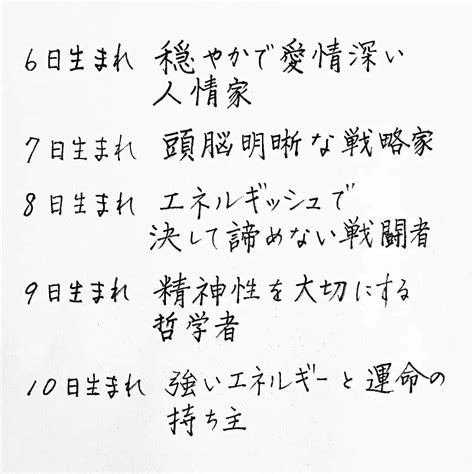 6日生まれ 穏やかで愛情深い
人情家
7日生まれ 頭脳明晰な戦略家
8日生まれ エネルギッシュで
決して諦めない戦闘者
9日生まれ 精神性を大切にする
哲学者
10日生まれ 強いエネルギーと運命の
持ち主